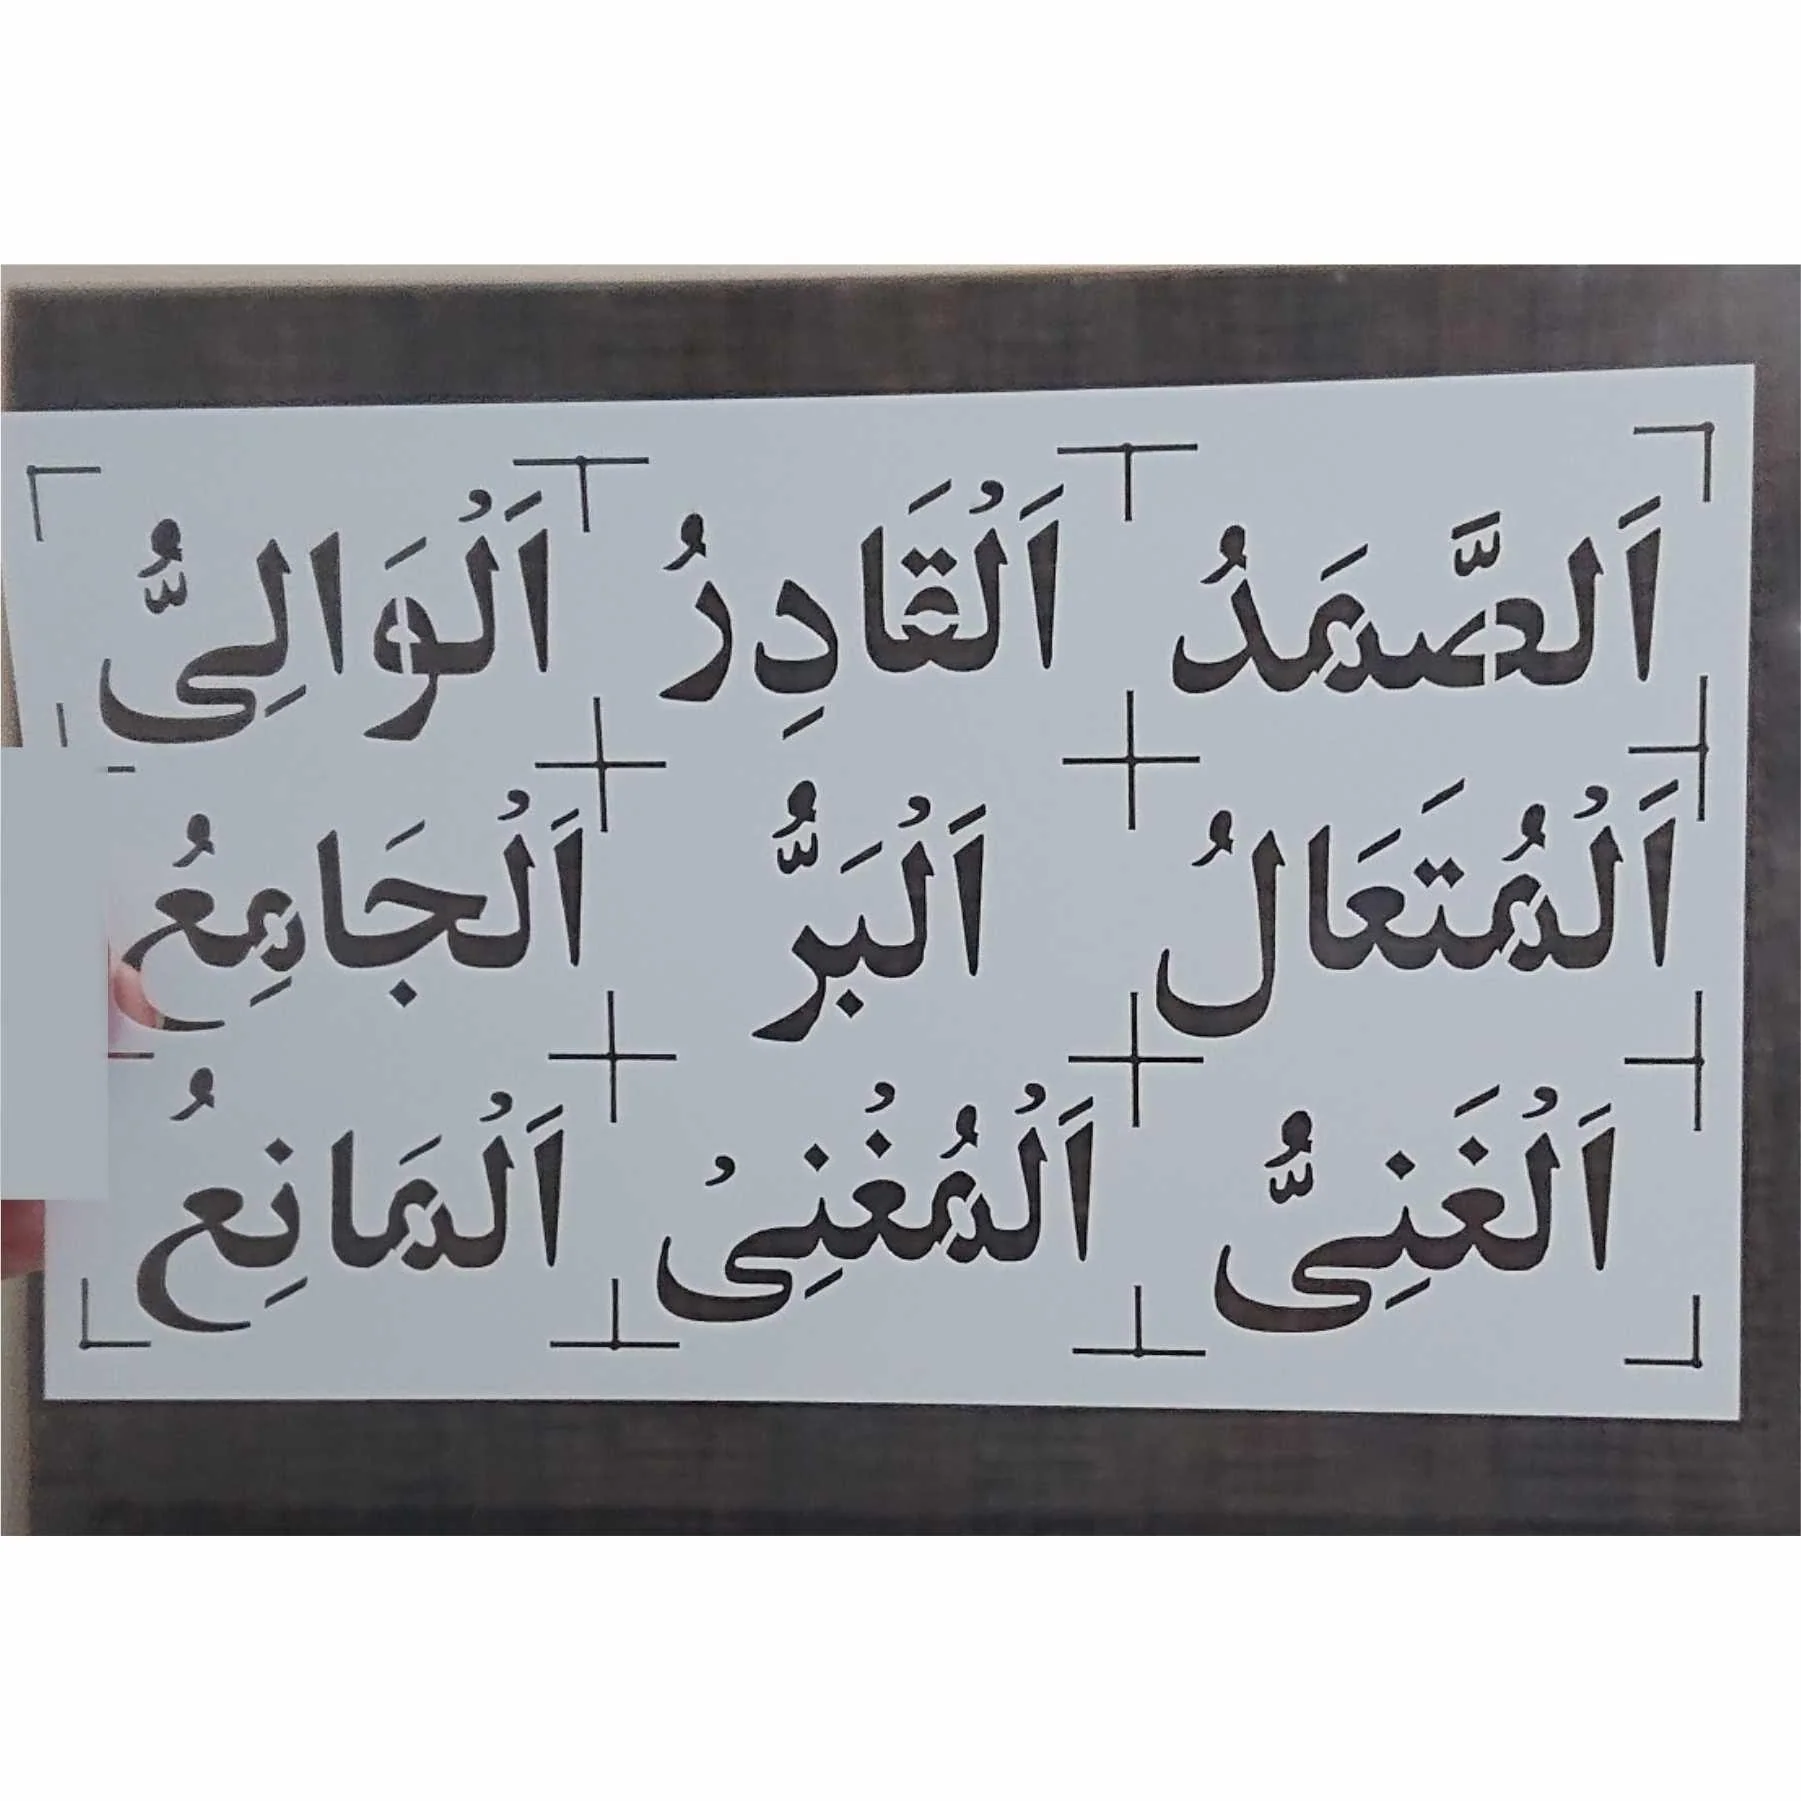 اَلصَّمَدُ اَلْقَادِرُ اَلْوَالِىُّ
اَلْمُتَعَالُ اَلْبَرُّ اَلْجَامِعُ
اَلْغَنِىُّ اَلْمُغْنِىْ اَلْمَانِعُ